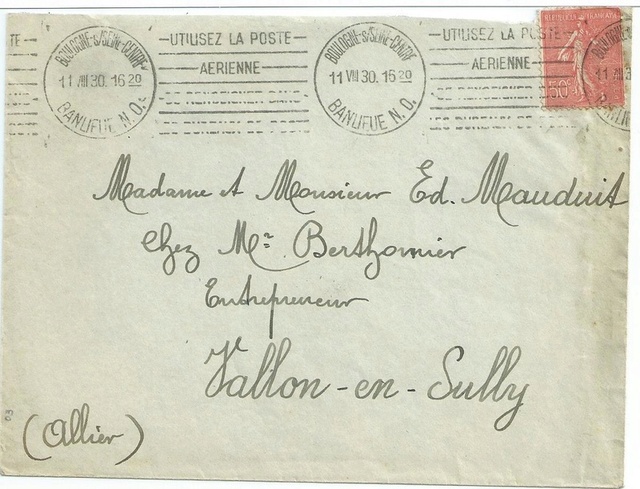 BOULOGNE-S/SEINE-CENTRE
11 VIII 30. 16 20
BANLIEUE N.O.
-UTILISEZ LA POSTE-
AERIENNE
SE RENSEIGNER DANS
LES BUREAUX DE POSTE
BOULOGNE-S/SEINE-CENTRE
11 VIII 30. 16 20
BANLIEUE N.O.
-UTILISEZ LA POSTE
AERIENNE
SE RENSEIGNER DANS
LES BUREAUX DE POSTE
REPUBLIQUE FRANÇAISE
50c
Madame et Monsieur Ed. Mauduit
Chez Mr Berthomier
Entrepreneur
Vallon-en-Sully
(Allier)
03